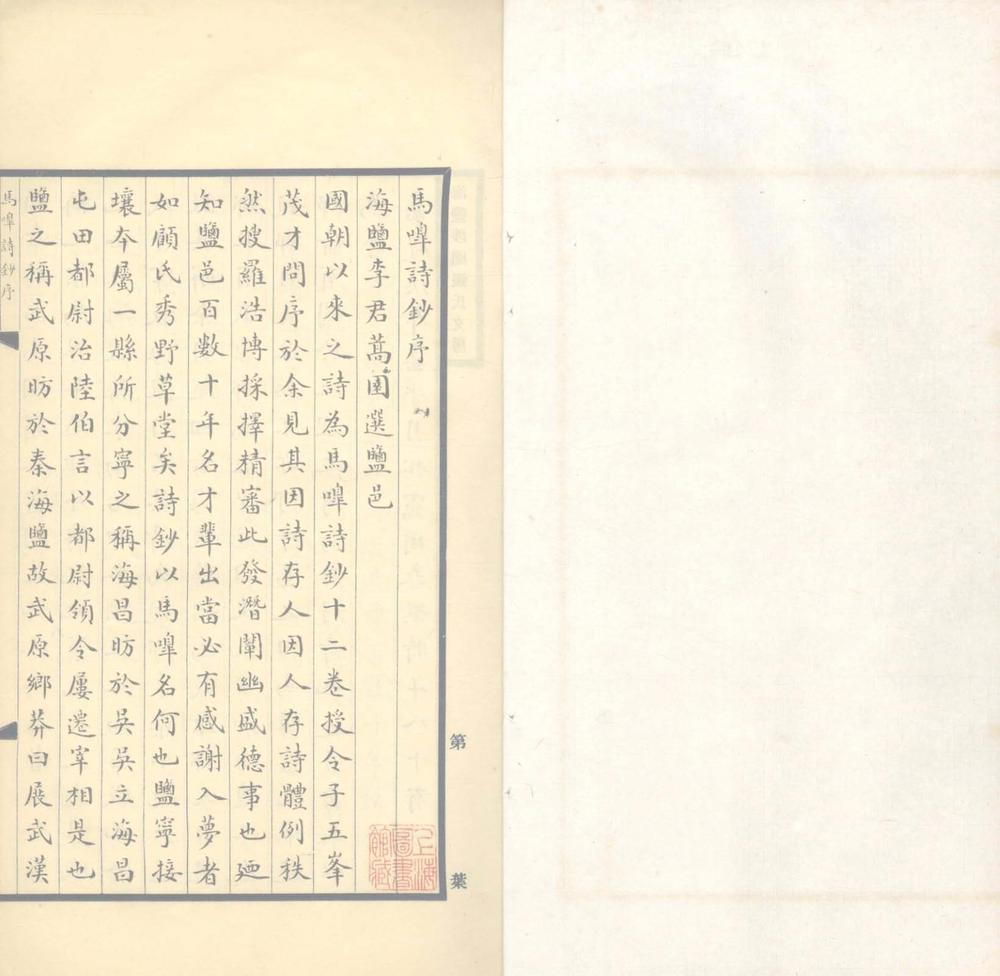 馬嘷詩鈔序
海鹽李君蒿園選鹽邑
國朝以來之詩為馬嘷詩鈔十二卷授令子五峯
茂才問序於余見其因詩存人因人存詩體例秩
然搜羅浩博採擇精審此發潛闡幽盛德事也廼
知鹽邑百數十年名才輩出當必有感謝入夢者
如顧氏秀野草堂矣詩鈔以馬嘷名何也鹽寧接
壤夲屬一縣所分寧之稱海昌昉於吳吳立海昌
屯田都尉治陸伯言以都尉領令屢遷宰相是也
鹽之稱武原昉於秦海鹽故武原鄉莽曰展武漢
馬嘷詩鈔序
第
葉
上海圖書館藏